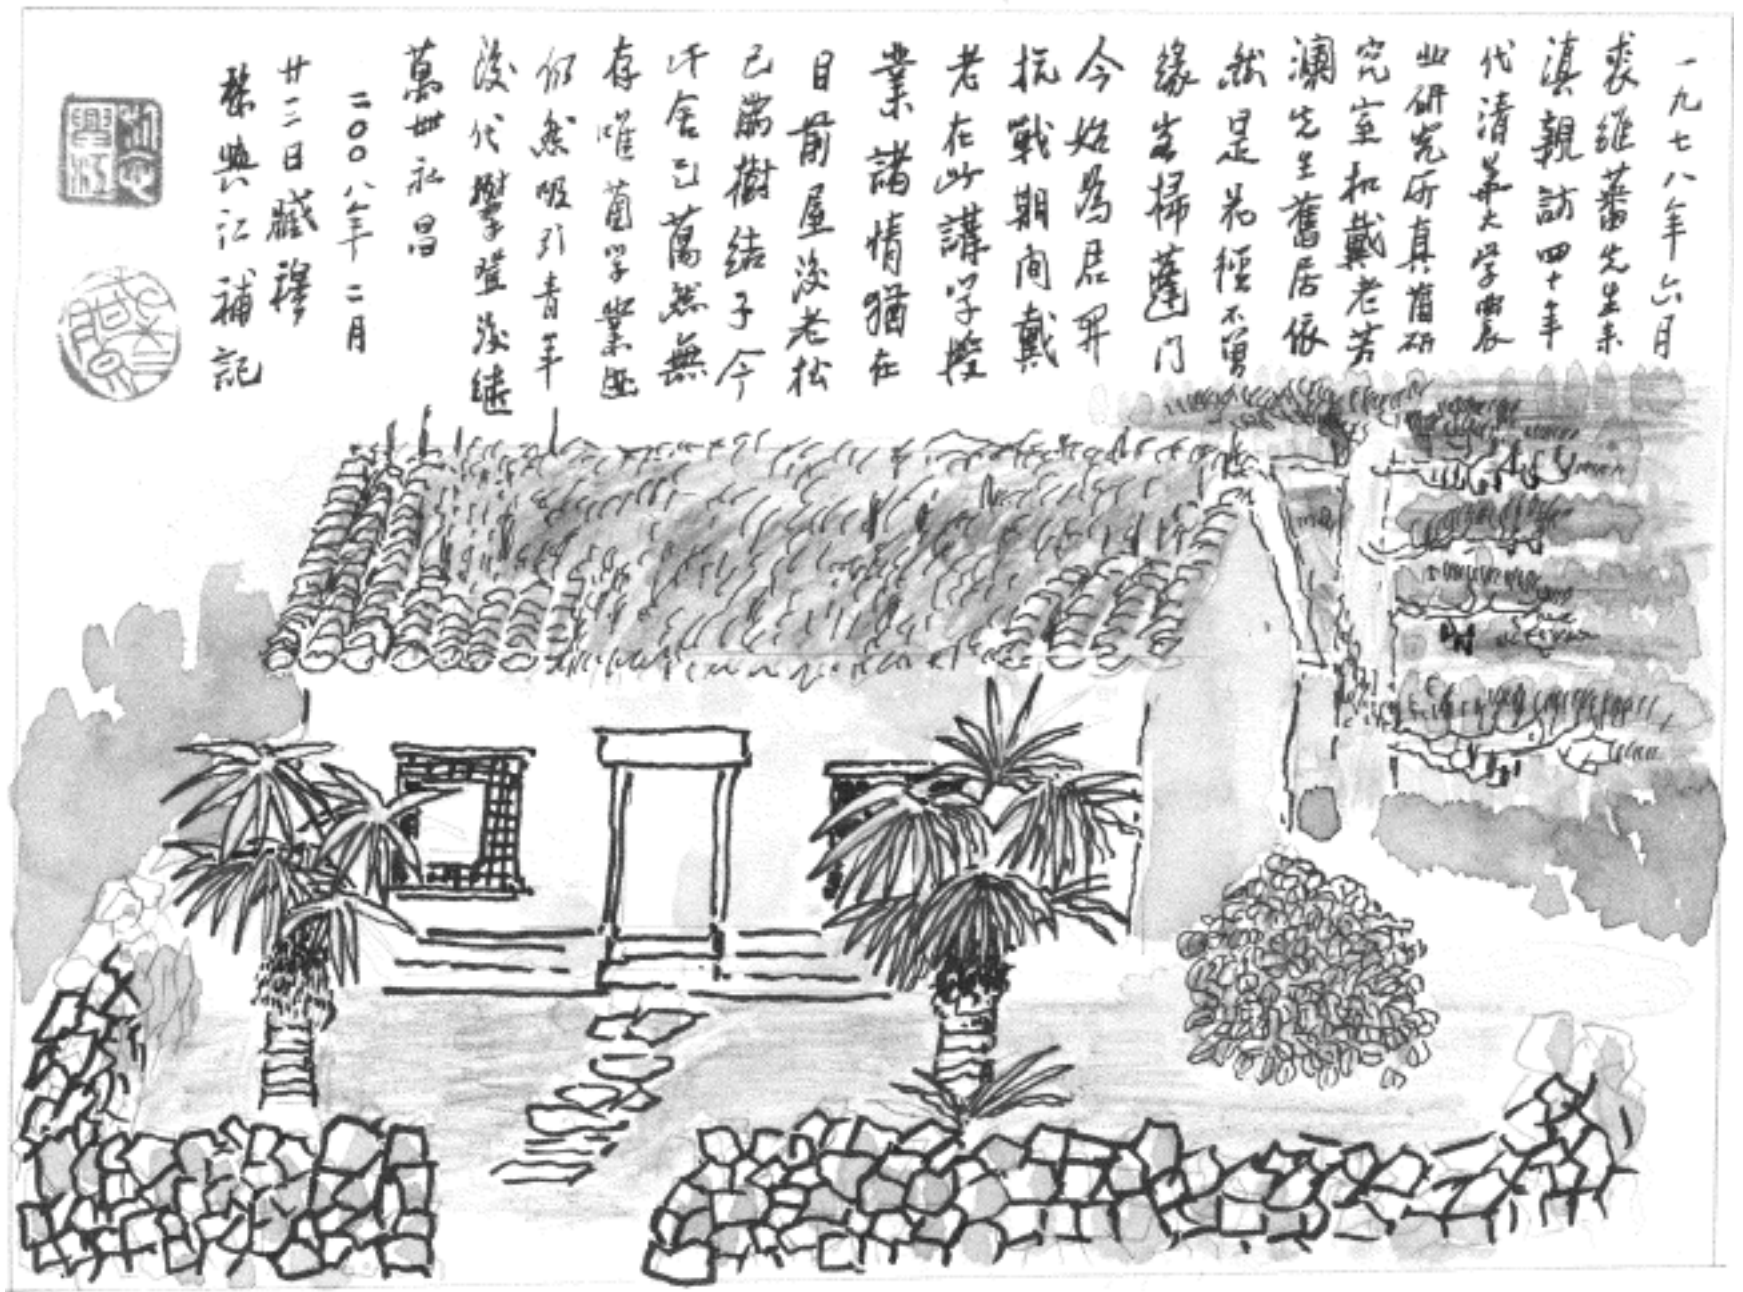 一九七八年六月
裘維蕃先生來
滇親訪四十年
代清華大学農
业研究所真菌研
究室和戴老芳
瀾先生舊居依
然是花徑不曾
緣客掃蓬门
今始為君开
抗戰期间戴
老在此講学授
業諸情猶在
目前屋後老松
已滿樹结子今
汗舍已蕩然無
存唯菌学業迹
仍然吸引青年
後代攀登後继
萬世社昌
二00八年二月
廿二日臧穆
黎興江補記